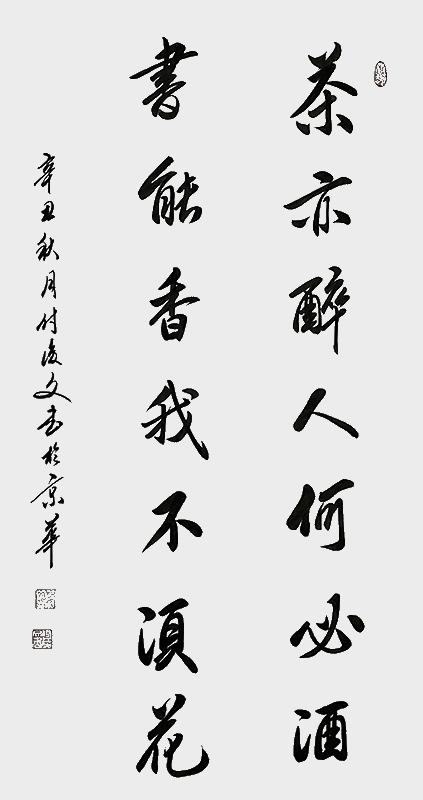 茶亦醉人何必酒
書能香我不須花
辛丑秋月付俊文书於京華